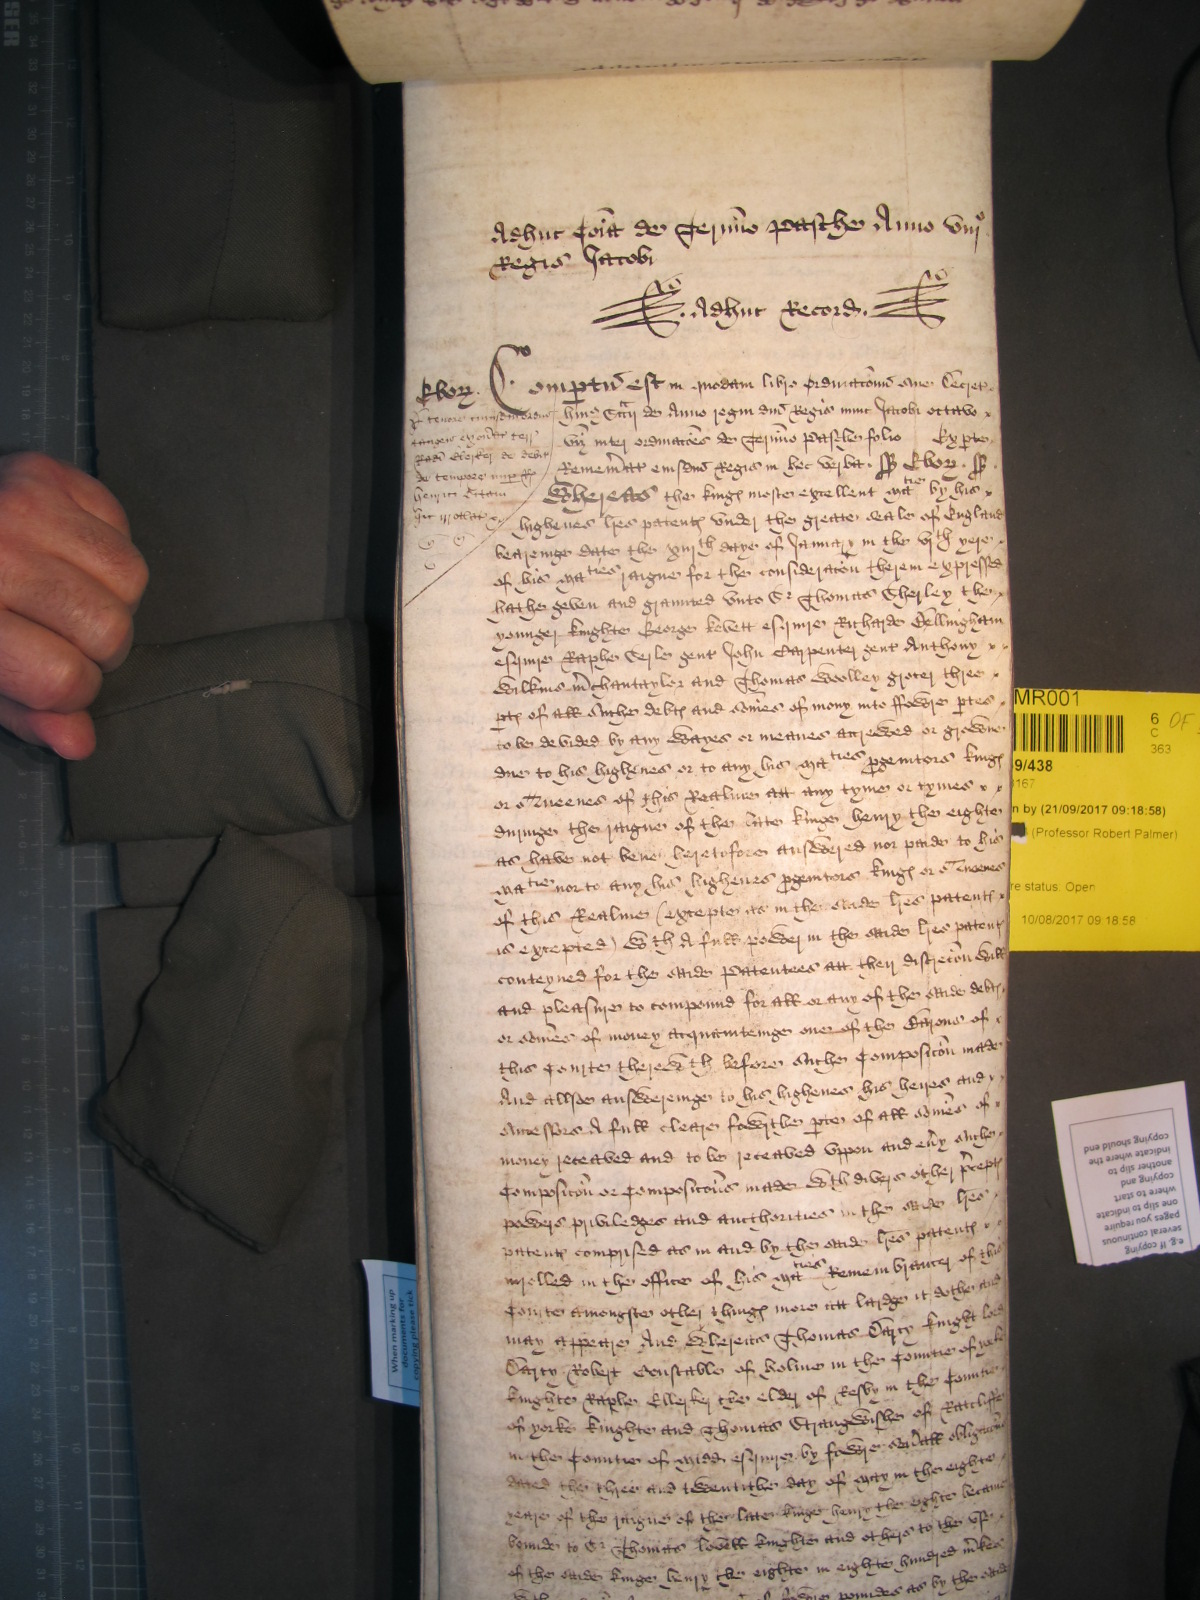 Adhuc Co͞ia de Termi͞o Pasche Anno viijº
Regis Jacobi
Adhuc Record.
Ebor͛.
Comp̲tu͞ est in quodam libro ordinac͞onu͞ sive Decret͛
hui͛ Sc͞cij de Anno regni d͞ni Regis nunc Jacobi octavo
vi͞z inter ordinac͞oes de Termi͞o Pasche folio Ex p̲te
Remem͞at͛ eiusd͞m Regis in hec verba. ss Ebor͛. ss
Whereas the kings moste excellent Matie by his
highenes l͞res patents under the greate Seale of England
bearinge date the xviijth daye of January in the vith yere
of his Maties raigne for the considerac͞on therein expressed
hathe geven and graunted unto Sr Thomas Sherley the
younger knighte George Kevett esquire Richarde Bellingham
esquire Raphe gent John Carpenter gent Anthony
Wilkins m͞chantaylor and Thomas Woolley grocer three
p̲ts of all suche debts and som͞es of mony into ffower p̲tes
to be devided by any wayes or meanes accrewed or growne
due to his highenes or to any his Maties p̲genitors kings
or Queenes of this Realme att any tyme or tymes
duringe the raigne of the late kinge henry the eighte
as have not bene heretofore answered nor paide to his
Matie nor to any his highenes p̲genitors kings or Queenes
of this Realme (excepte as in the saide l͞res patents
is excepted) Wth A full power in the saide l͞res patents
conteyned for the saide Patentees att their discrec͞on will
and pleasure to compound for all or any of the saide debts
or som͞es of money acquaintinge one of the Barons of
this Courte therewth before suche Composic͞on made
And allsoe answeringe to his highenes his heires and
Successors A full cleare fowrthe p̲te of all som͞es of
money receaved and to be receaved uppon and ev͞y suche
Composic͞on or Composic͞ons made Wth divers other p͞cepts
powers priviledges and aucthorities in the saide l͞res
patents comprised as in and by the saide l͞res patents
inrolled in the office of his Maties Remembrancer of this
Courte amongste other things more att lardge it dothe and
may appeare And Whereas Thomas Darcy knight lord
Darcy Robert Constable of Holme in the Countie of yorke
knighte Raphe Ellerker the elder of Resby in the Countie
of yorke knighte and Thomas Strangwishe of Ratcliffe
in the Countie of Midd esquire by fower sev͞all obligac͞ons
dated the three and twentithe day of May in the eighte
yeare of the raigne of the late kinge henry the eighte became
bounde to Sr Thomas lovell knighte and others to the use
of the saide kinge henry the eighte in eighte hundred m͞kes
powndes as by the saide
MR001
6 OF
C
363
9/438
167
n by (21/09/2017 09:18:58)
(Professor Robert Palmer)
re status: Open
10/08/2017 09:18:58
e.g. If copying
several continuous
pages you require
one slip to indicate
where to start
copying and
another slip to
indicate where the
copying should end
When marking up
documents for
copying please tick